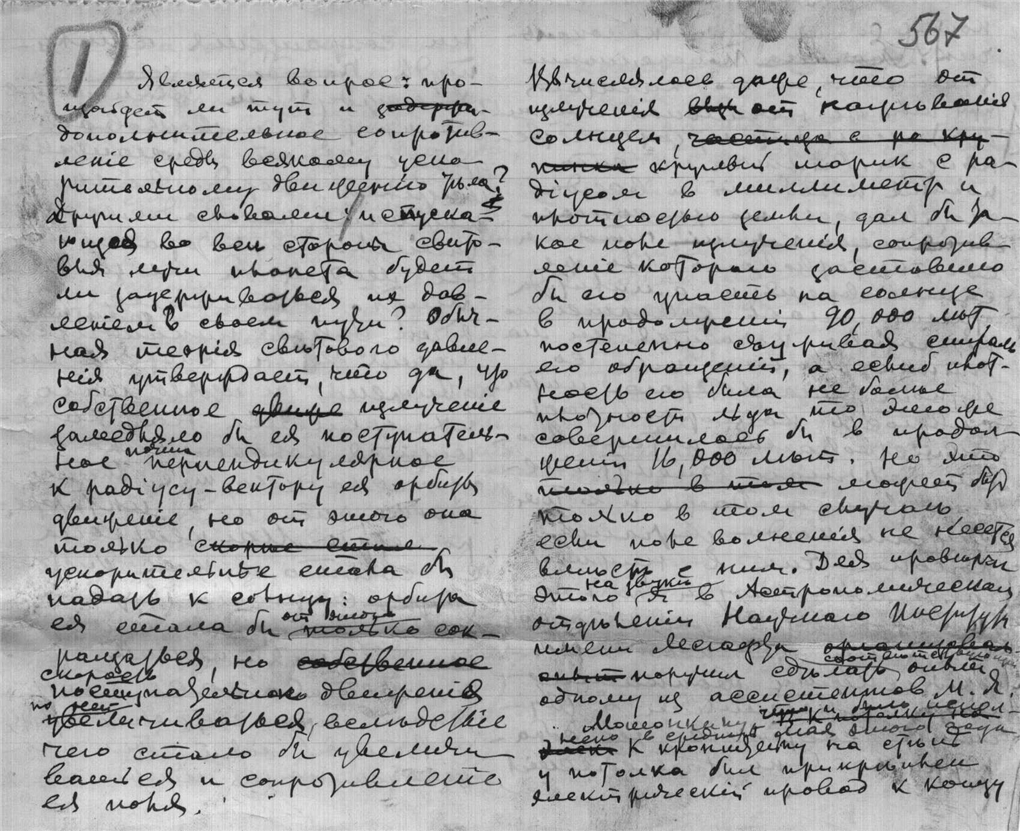 1
567
Является вопрос: про-
изойдет ли тут и задерж-
дополнительное сопротив-
леніе среды всякому уско-
рительному движенію тѣла?
Другими словами: испуска-
ющая во всѣ стороны свѣто-
вые лучи планета будет
ли задерживаться их дав-
леніем в своем пути? Обыч-
ная теорія свѣтового давле-
нія утверждает, что да, что
собственное излученіе
замедляло бы ея поступатель-
ное почти перпендикулярное
к радіусу-вектору ея орбиты
движеніе, но от этого она
только скорѣе стала
ускорительнѣе стала бы
падать к солнцу: орбита
ея стала бы от этого только сок-
ращаться, но собственное
скорость
поступательнаго движенія
по ней
увеличиваться, вслѣдствіе
чего стало бы увеличи-
ваться и сопротивленіе
ея поля.
Вычислялось даже, что от
излученія от нагрѣванія
солнцем, частица с ра кру-
пинка круглый шарик с ра-
діусом в миллиметр и
плотностью земли, дал бы та-
кое поле излученія, сопротив-
леніе которого заставило
бы его упасть на солнце
в продолженіи 90,000 лѣт,
постепенно съуживая спираль
его обращеній, а еслиб плот-
ность его была не более
плотности льда, то это же
совершилось бы в продол-
женіи 16,000 лѣт. Но это
только в том может быть
только в том случаѣ
если поле волненія не несется
вмѣстѣ с ним. Для провѣрки
этого на звуке я в Астрономическом
отдѣленіи Научнаго Института
имени Лесгафта
поручил сдѣлать опыт
одному из ассистентов М. Я.
Мошонкину,
в средину зала этого отдѣ
К кронштейну на стѣнѣ
у потолка был прикрѣплен
электрическій провод к концу